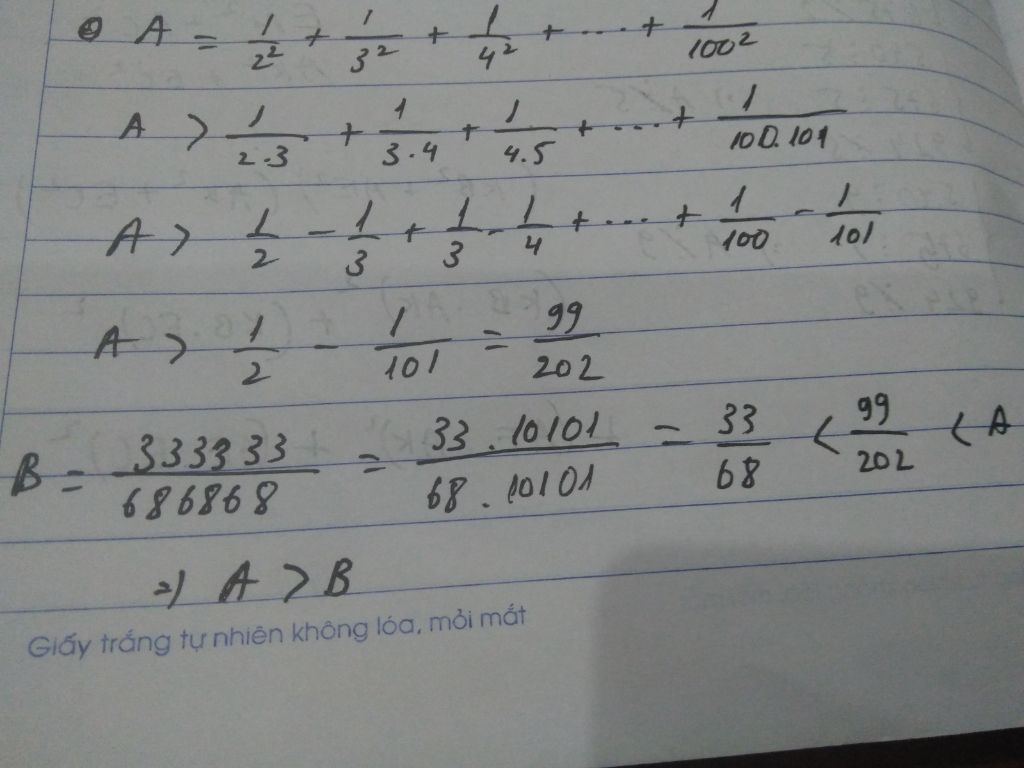 A = 1/2² + 1/3² + 1/4² + .... + 1/100²
A > 1/2.3 + 1/3.4 + 1/4.5 + .... + 1/100.101
A > 1/2 - 1/3 + 1/3 - 1/4 + .... + 1/100 - 1/101
A > 1/2 - 1/101 = 99/202
B = 333333/686868 = 33.10101/68.10101 = 33/68 < 99/202 < A
=) A > B
Giấy trắng tự nhiên không lóa, mỏi mắt